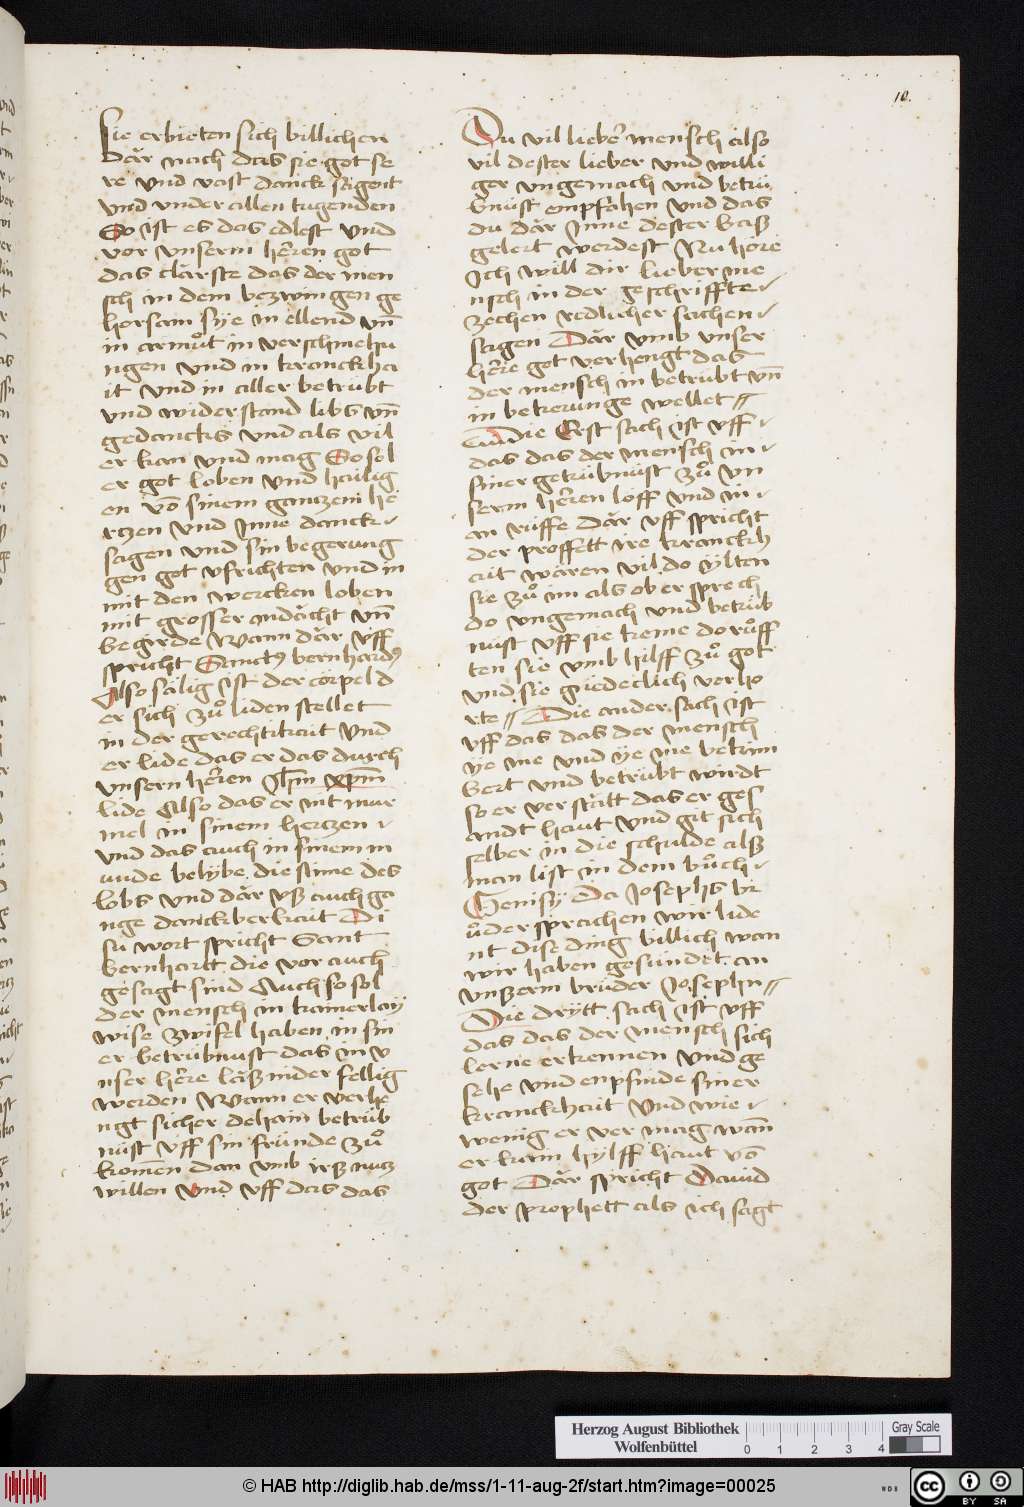 10.
sie erbieten sich billichen
där nach das sie got se
re vnd vast danck sagent
vnd vnder allen tugenden
So ist es das edlest vnd
vor vnserm herren got
das clärste das der men
sch in dem bezwingen ge
horsam sÿe in ellend vn̄
in armuͦt in verschmehu
ngen vnd in kranckha
it vnd in aller betrübt
vnd widerstand libs vn̄
gedancks vnd als vil
er kan vnd mag So sol
er got loben vnd hailig
en vō sinem gantzem he
rtzen vnd Inne danck
sagen vnd sin begerung
gen got vfrichten vnd in
mit den wercken loben
mit grosser andächt vn̄
begirde Wann där vff
spricht Sanctꝰ bernhardꝰ
Also sälig ist der cörpel d
er sich zuͦ liden stellet
in der gerechtikait vnd
er lide das er das durch
vnsern herren Jhm xpm
lide Also das er nit mur
mel in sinem hertzen
vnd das auch in sinem m
unde belÿbe die stime des
lobs vnd där vß auch ga
nge danckberkait Di
su wort spricht Sant
bernhartt die vor auch
gesagt sind Auch so sol
der mensch in kainerlaÿ
wise zwifel haben in sin
er betrübnust das in v
nser herre läß nider fellig
werden Wann er verhe
ngt sicher dehain betrüb
nüst vff sin fründe zuͦ
komen dan vmb irß nutz
willen vnd vff das das
Du vil lieber mensch also
vil dester lieber vnd willi
ger vngemach vnd betrü
bnüst empfahen vnd das
du där Inne dester baß
gelert werdest Nu höre
Ich will dir lieber me
nsch in der geschriffte
zechen redlicher sachen
sagen Där vmb vnser
herre got verhengt das
der mensch in betrübt vn̄
in bekerunge wellet
Die Erst sach ist vff
das das der mensch in
siner getrübnüst zuͦ vn
serm herren loff vnd in
an rüffe där vff spricht
der proffett ire kranckh
ait wären vil do ÿlten
sie zuͦ im als ob er sprech
do vngemach vnd betrüb
nüst vff sie keme do ruͦff
ten sie vmb hilff zuͦ got
vnd sie güedeclich verho
rte Die ander sach ist
vff das das der mensch
ÿe me vnd ÿe me beküm
bert vnd betrübt wirdt
so er ver stätt das er ges
andt haut vnd git sich
selber in die schulde alß
man list in dem buͦch
Genisÿ Da Josephs br
uͦder sprachen wir lide
nt dise ding billich wan
wir haben gesündet an
vnßerm bruder Josephn
Die drÿtt sach ist vff
das das der mensch sich
lerne erkennen vnd ge
sehe vnd enpfinde siner
kranckhait Vnd wie
wenig er ver mag wan̄
er kain hÿlff haut vō
got Där spricht Dauid
der prophett als ich sagt
Herzog August Bibliothek
Wolfenbüttel
0 1 2 3 4
Gray Scale
© HAB http://diglib.hab.de/mss/1-11-aug-2f/start.htm?image=00025
WDB
cc BY SA